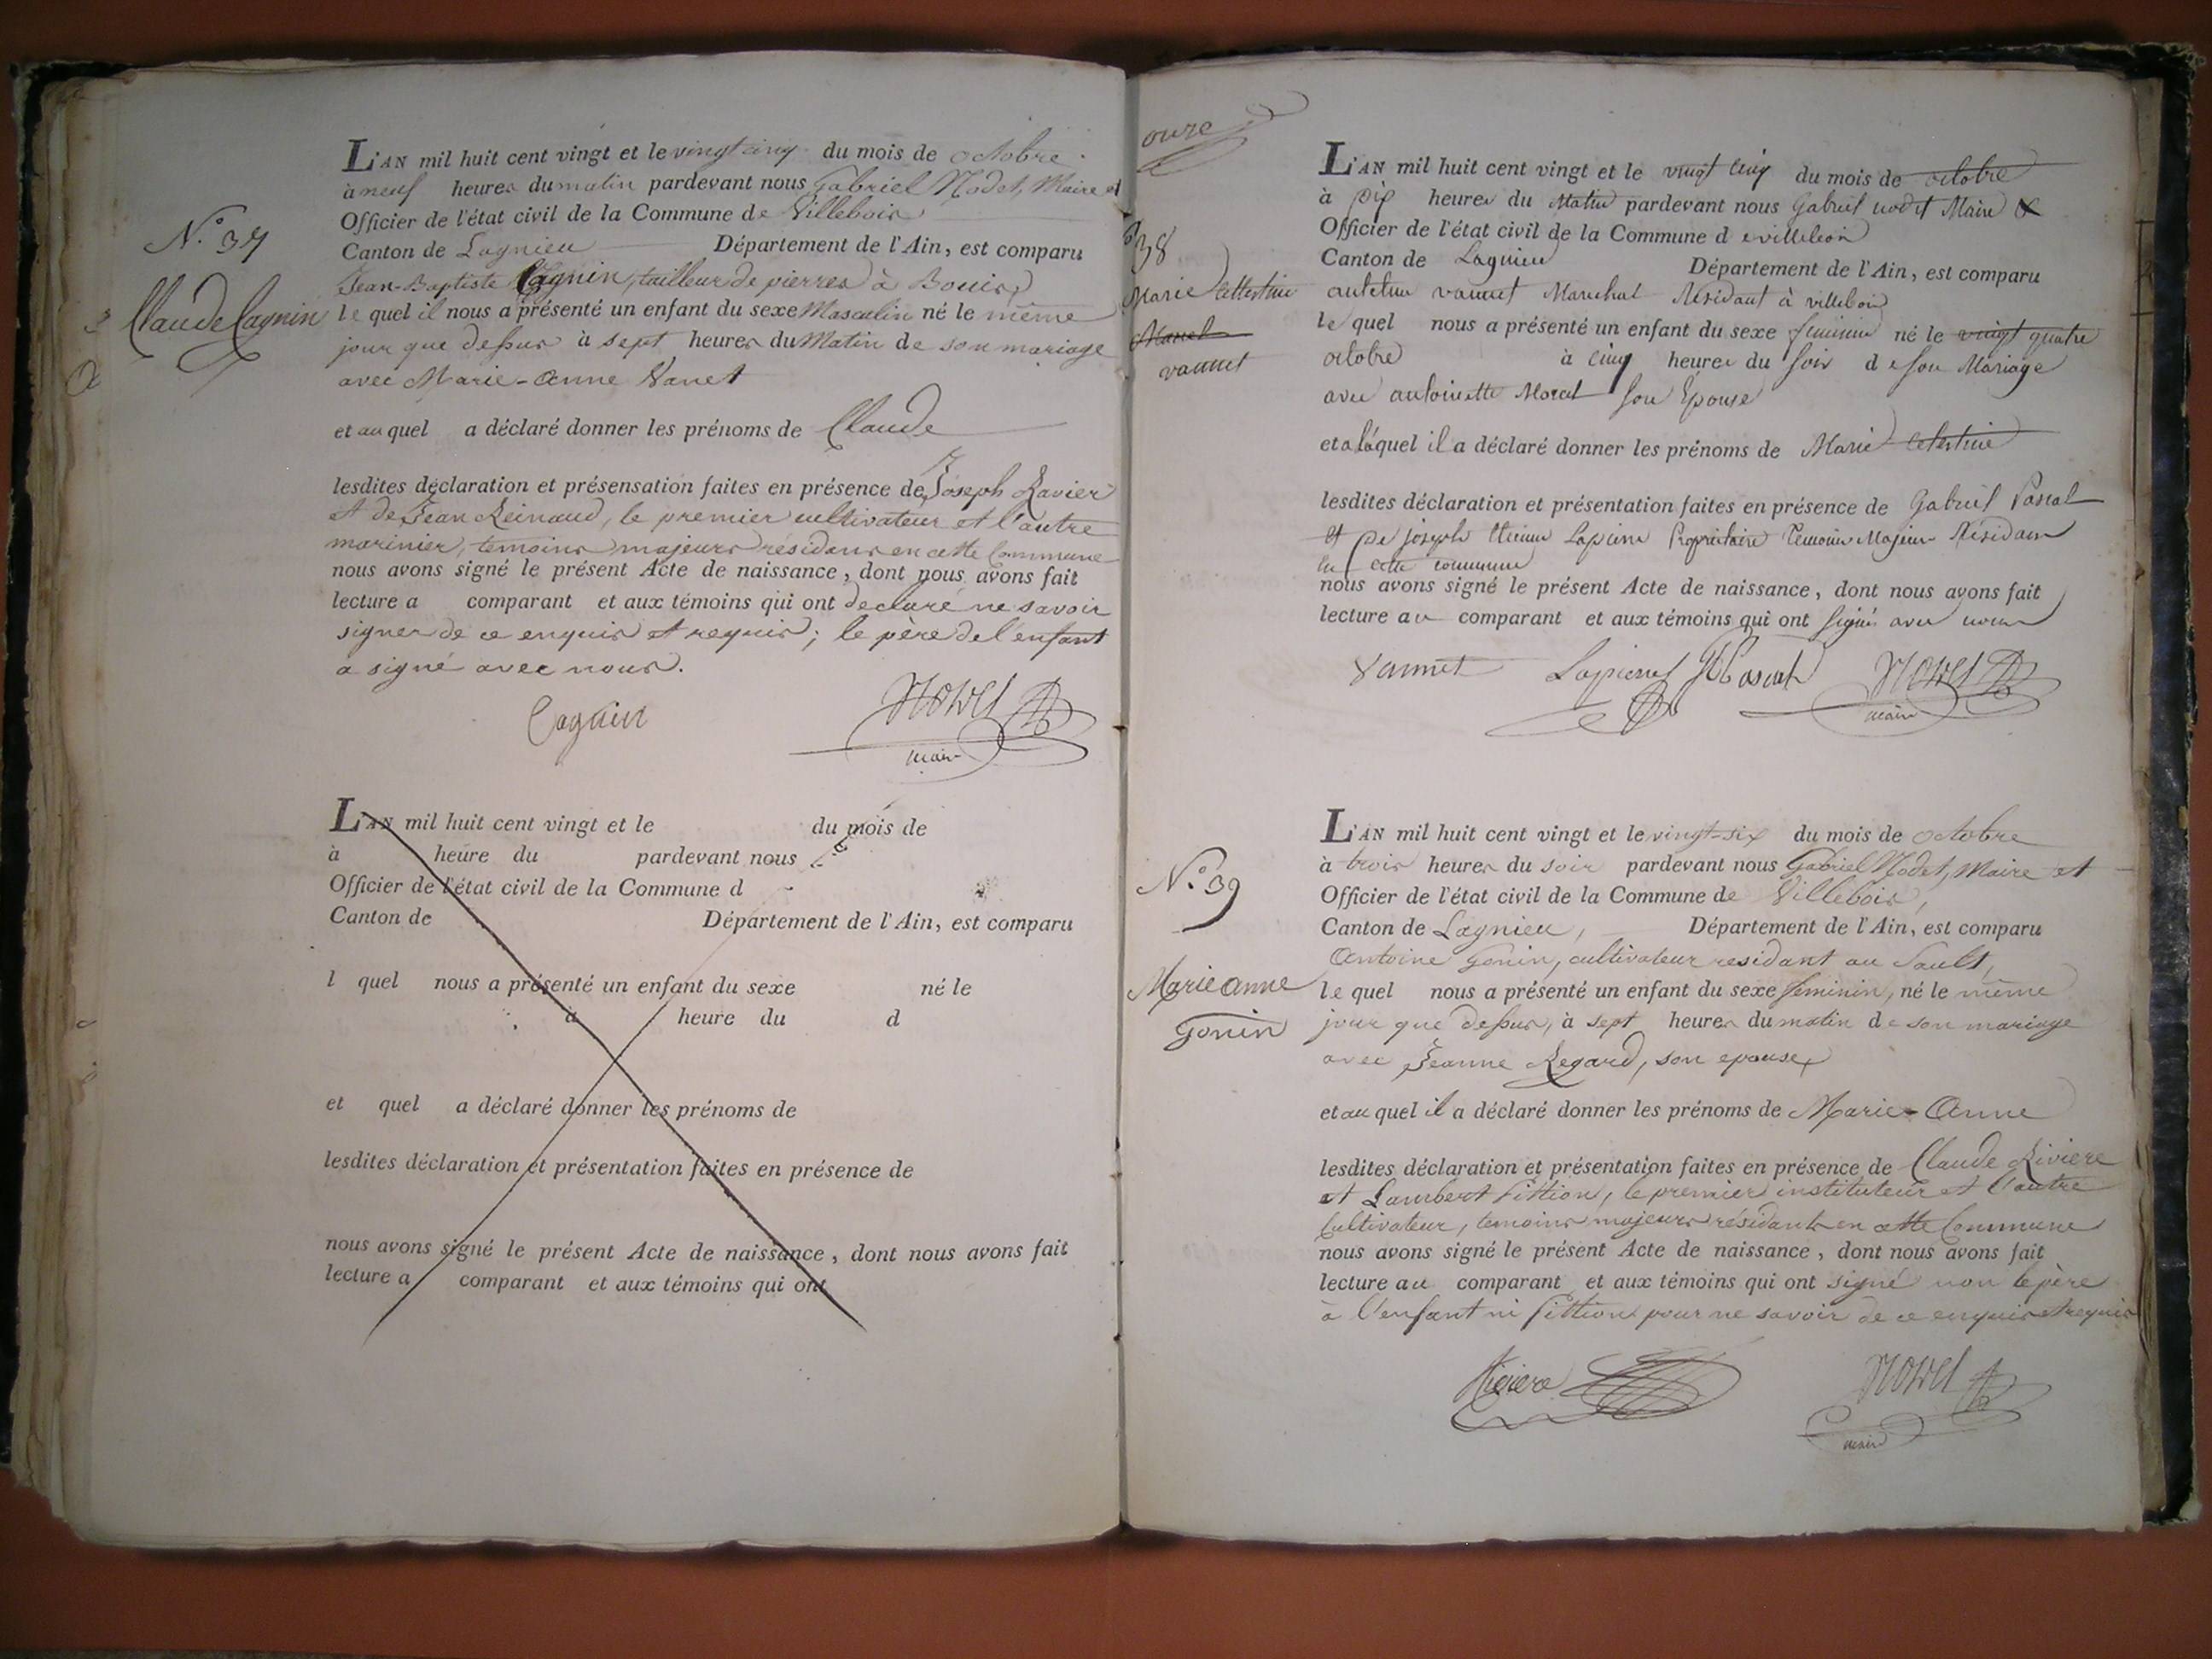 N.º 37
Claude Cagnin
L'AN mil huit cent vingt et le vingt cinq du mois de octobre
à neuf heures du matin pardevant nous Gabriel Nodet, Maire et
Officier de l'état civil de la Commune de Villebois
Canton de Lagnieu Département de l'Ain, est comparu
Jean-Baptiste Cagnin, tailleur de pierres à Bouis,
le quel il nous a présenté un enfant du sexe Masculin né le même
jour que dessus à sept heures du Matin de son mariage
avec Marie-Anne Vanet
et au quel a déclaré donner les prénoms de Claude
lesdites déclaration et présensation faites en présence de Joseph Ravier
et de Jean Reinaud, le premier cultivateur et l'autre
marinier, temoins majeurs résidans en cette Commune
nous avons signé le présent Acte de naissance, dont nous avons fait
lecture a comparant et aux témoins qui ont declaré ne savoir
signer de ce enquis et requis; le père de l'enfant
a signé avec nous.
Cagnin Nodet
maire
L'AN mil huit cent vingt et le du mois de
à heure du pardevant nous
Officier de l'état civil de la Commune d
Canton de Département de l'Ain, est comparu
l quel nous a présenté un enfant du sexe né le
à heure du d
et quel a déclaré donner les prénoms de
lesdites déclaration et présentation faites en présence de
nous avons signé le présent Acte de naissance, dont nous avons fait
lecture a comparant et aux témoins qui ont
onze
38
Marie Celestine
Morel
vannet
L'AN mil huit cent vingt et le vingt cinq du mois de octobre
à dix heures du Matin pardevant nous Gabriel nodet Maire &
Officier de l'état civil de la Commune de villebois
Canton de Lagnieu Département de l'Ain, est comparu
vannet Marechal Résidant à villebois
le quel nous a présenté un enfant du sexe feminin né le vingt quatre
octobre à cinq heures du soir de son Mariage
avec antoinette Morel son Epouse
et a láquel il a déclaré donner les prénoms de Marie Celestine
lesdites déclaration et présentation faites en présence de Gabriel Pascal
et de joseph Lapierre Proprietaire Temoins Majeur Résidans
en cette commune
nous avons signé le présent Acte de naissance, dont nous avons fait
lecture au comparant et aux témoins qui ont signé avec nous
Vannet Lapierre Pascal Nodet
maire
N.º 39
Marie anne
Gonin
L'AN mil huit cent vingt et le vingt-six du mois de octobre
à trois heures du soir pardevant nous Gabriel Nodet, Maire et
Officier de l'état civil de la Commune de Villebois,
Canton de Lagnieu, Département de l'Ain, est comparu
Antoine Gonin, cultivateur residant au Sault,
le quel nous a présenté un enfant du sexe feminin, né le même
jour que dessus, à sept heures du matin de son mariage
avec Jeanne Regard, son epouse,
et au quel il a déclaré donner les prénoms de Marie-Anne
lesdites déclaration et présentation faites en présence de Claude Riviere
et Lambert Fittion, le premier instituteur et l'autre
Cultivateur, temoins majeurs résidants en cette Commune
nous avons signé le présent Acte de naissance, dont nous avons fait
lecture au comparant et aux témoins qui ont signé non le père
à l'enfant ni Fittion pour ne savoir de ce enquis et requis
Riviere Nodet
maire